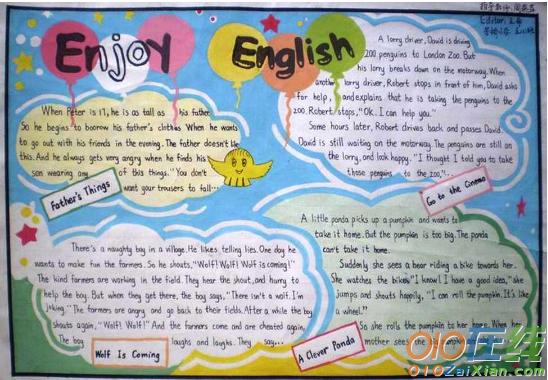 Enjoy English
Editor:
When Peter is 17, he is as tall as his father.
So he begins to boorow his father's clothes. When he wants
to go out with his friends in the evening. The father doesn't like
this. And he always gets very angry when he finds his
son wearing any of this things. "You don't
want your trousers to fall...
Father's Things
A lorry driver, David is driving
200 penguins to London Zoo. But
his lorry breaks down on the motorway. When
another lorry driver, Robert stops in front of him, David asks
for help, and explains that he is taking the penguins to the
zoo. Robert stops, "Ok. I can help you."
Some hours later, Robert drives back and passes David.
David is still waiting on the motorway. The penguins are still on
the lorry, and look happy. "I thought I told you to take
those penguins to the zoo,"...
Go to the Cinema
There's a naughty boy in a village. He likes telling lies. One day he
wants to make fun the farmers. So he shouts, "Wolf! Wolf! Wolf is coming!"
The kind farmers are working in the field. They hear the shout, and hurry to
help the boy. But when they get there, the boy says, "There isn't a wolf. I'm
joking." The farmers are angry and go back to their fields. After a while the boy
shouts again, "Wolf! Wolf!" And the farmers come and are cheated again.
The boy laughs and laughs. They say...
Wolf Is Coming
A little panda picks up a pumpkin and wants to
take it home. But the pumpkin is too big. The panda
can't take it home.
Suddenly she sees a bear riding a bike towards her.
She watches the bike. "I know! I have a good idea," she
jumps and shouts happily, "I can roll the pumpkin. It's like
a wheel."
So she rolls the pumpkin to her home. When her
mother sees the big pumpkin
A Clever Panda
010在线
010ZaiXian.com